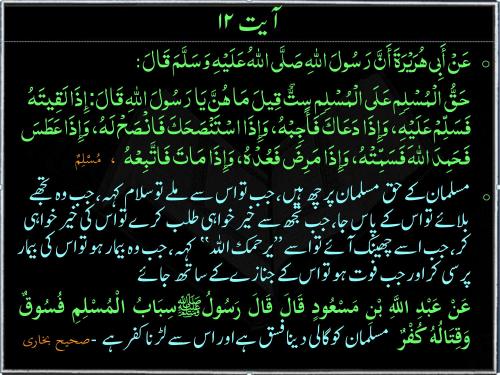 آیت ۱۲
عَنْ أَبِي هُرَيْرَةَ أَنَّ رَسُولَ اللهِ صَلَّى اللهُ عَلَيْهِ وَسَلَّمَ قَالَ:
حَقُّ الْمُسْلِمِ عَلَى الْمُسْلِمِ سِتٌّ قِيلَ مَا هُنَّ يَا رَسُولَ اللهِ قَالَ: إِذَا لَقِيتَهُ
فَسَلِّمْ عَلَيْهِ، وَإِذَا دَعَاكَ فَأَجِبْهُ، وَإِذَا اسْتَنْصَحَكَ فَانْصَحْ لَهُ، وَإِذَا عَطَسَ
فَحَمِدَ اللهَ فَسَمِّتْهُ، وَإِذَا مَرِضَ فَعُدْهُ، وَإِذَا مَاتَ فَاتَّبِعْهُ ، مُسْلِمٌ
مسلمان کے حق مسلمان پر چھ ہیں، جب تو اس سے ملے تو سلام کہہ، جب وہ تجھے
بلائے تو اس کے پاس جا، جب تجھ سے خیر خواہی طلب کرے تو اس کی خیر خواہی
کر، جب اسے چھینک آئے تو اسے ”یرحمک اللہ“ کہہ، جب وہ بیمار ہو تو اس کی بیمار
پرسی کر اور جب فوت ہو تو اس کے جنازے کے ساتھ جائے
عَنْ عَبْدِ اللَّهِ بْنِ مَسْعُودٍ قَالَ قَالَ رَسُولُ ﷺ سِبَابُ الْمُسْلِمِ فُسُوقٌ
وَقِتَالُهُ كُفْرٌ مسلمان کو گالی دینا فسق ہے اور اس سے لڑنا کفر ہے -صحیح بخاری